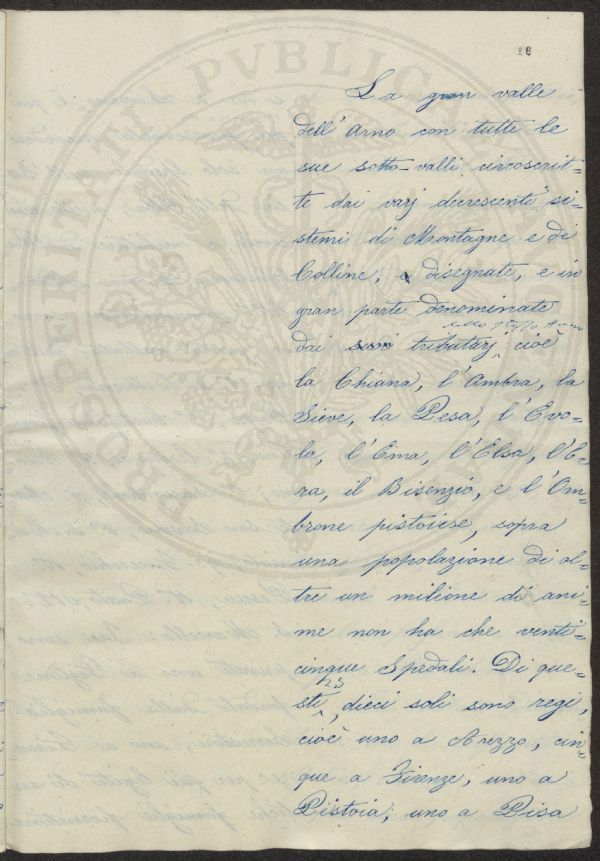 18
La gran valle
dell' Arno con tutte le
sue sotto-valli circoscrit=
te dai varj decrescenti si=
stemi di Montagne e di
Colline, disegnate, e in
gran parte denominate
dello stesso Arno
dai suoi tributarj cioè
la Chiana, l'Ambra, la
Sieve, la Pesa, l'Evo=
la, l'Ema, l'Elsa, l'E=
ra, il Bisenzio, e l'Om=
brone pistoiese, sopra
una popolazione di ol=
tre un milione di ani=
me non ha che venti=
cinque Spedali. Di que=
25
sti, dieci soli sono regi,
cioè uno a Arezzo, cin=
que a Firenze, uno a
Pistoia, uno a Pisa
PROSPERITATI PVBLICAE